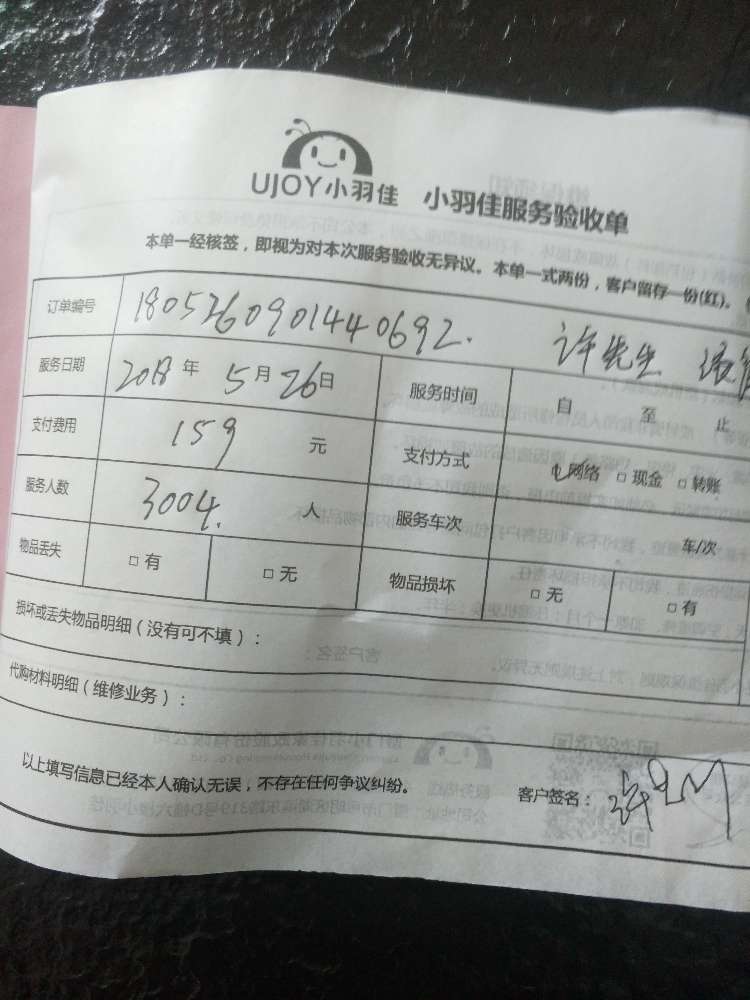 UJOY小羽佳 小羽佳服务验收单
本单一经核签，即视为对本次服务验收无异议。本单一式两份，客户留存一份(红)。
订单编号 1805260901440692. 许先生
服务日期 2018 年 5 月 26 日 服务时间 自 至 止
支付费用 159 元 支付方式 网络 □ 现金 □ 转账
服务人数 3004. 人 服务车次 车/次
物品丢失 □ 有 □ 无 物品损坏 □ 无 □ 有
损坏或丢失物品明细（没有可不填）：
代购材料明细（维修业务）：
以上填写信息已经本人确认无误，不存在任何争议纠纷。 客户签名：